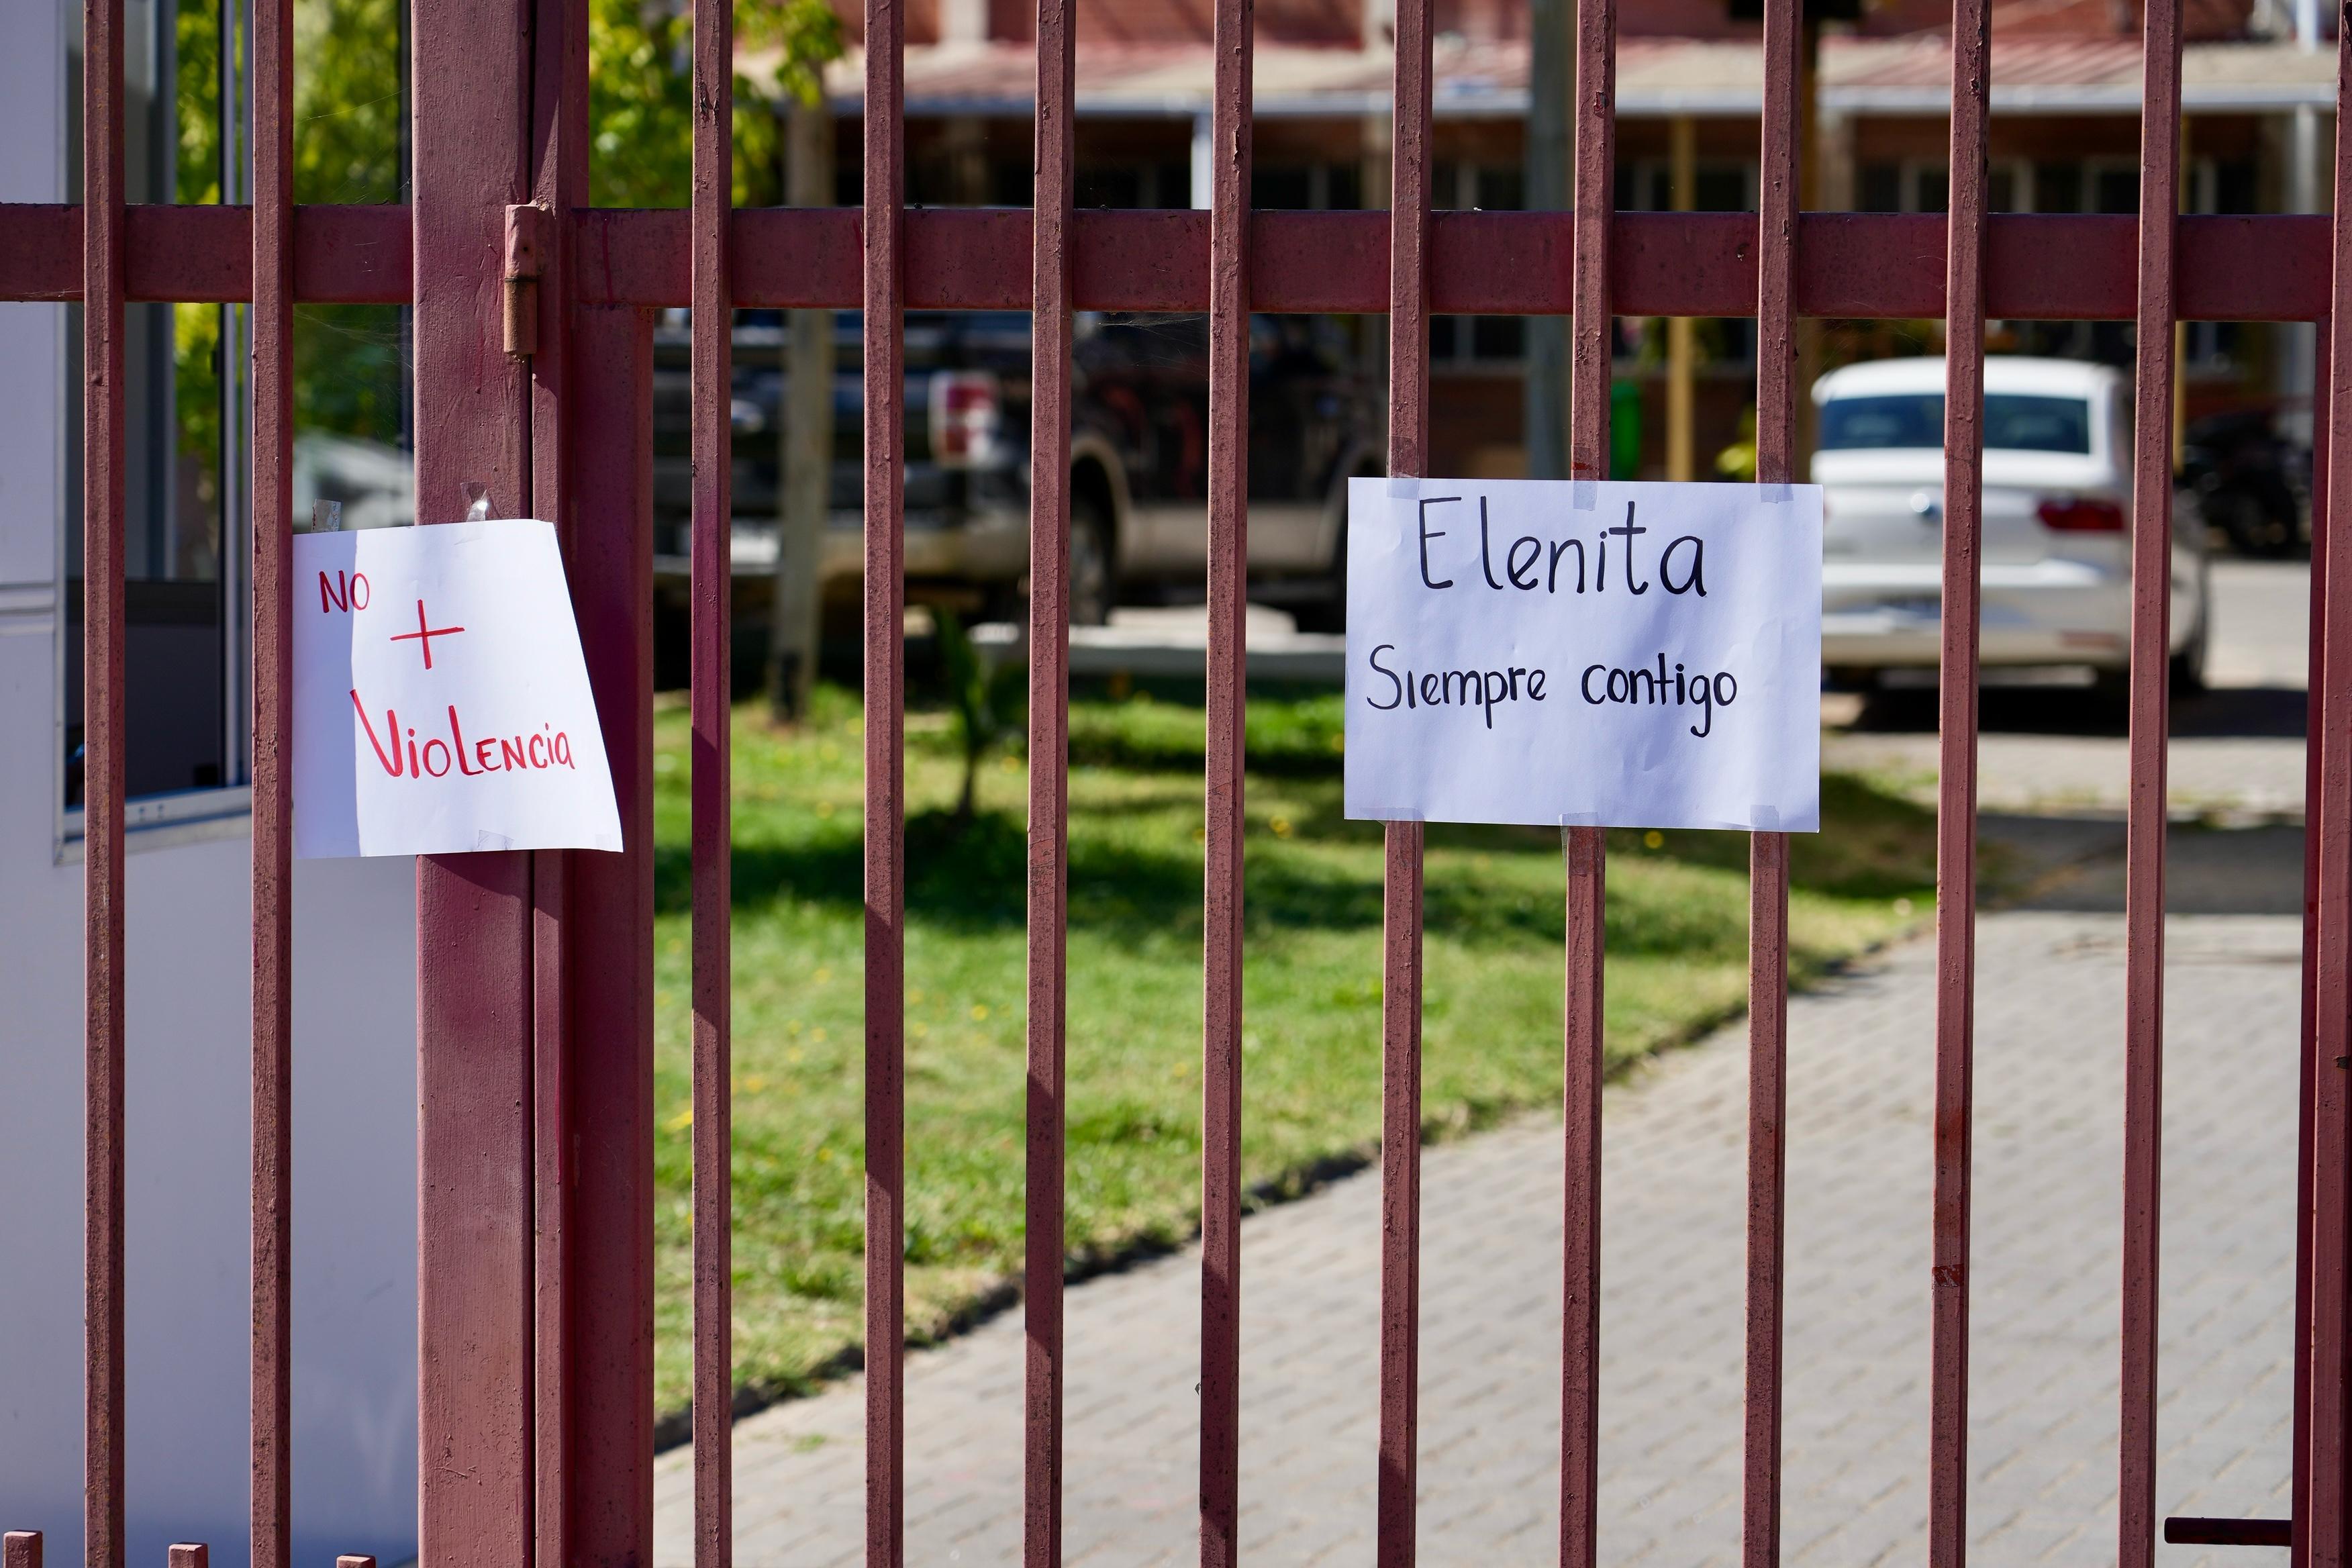 NO
+
VioLENcia
Elenita
Siempre contigo